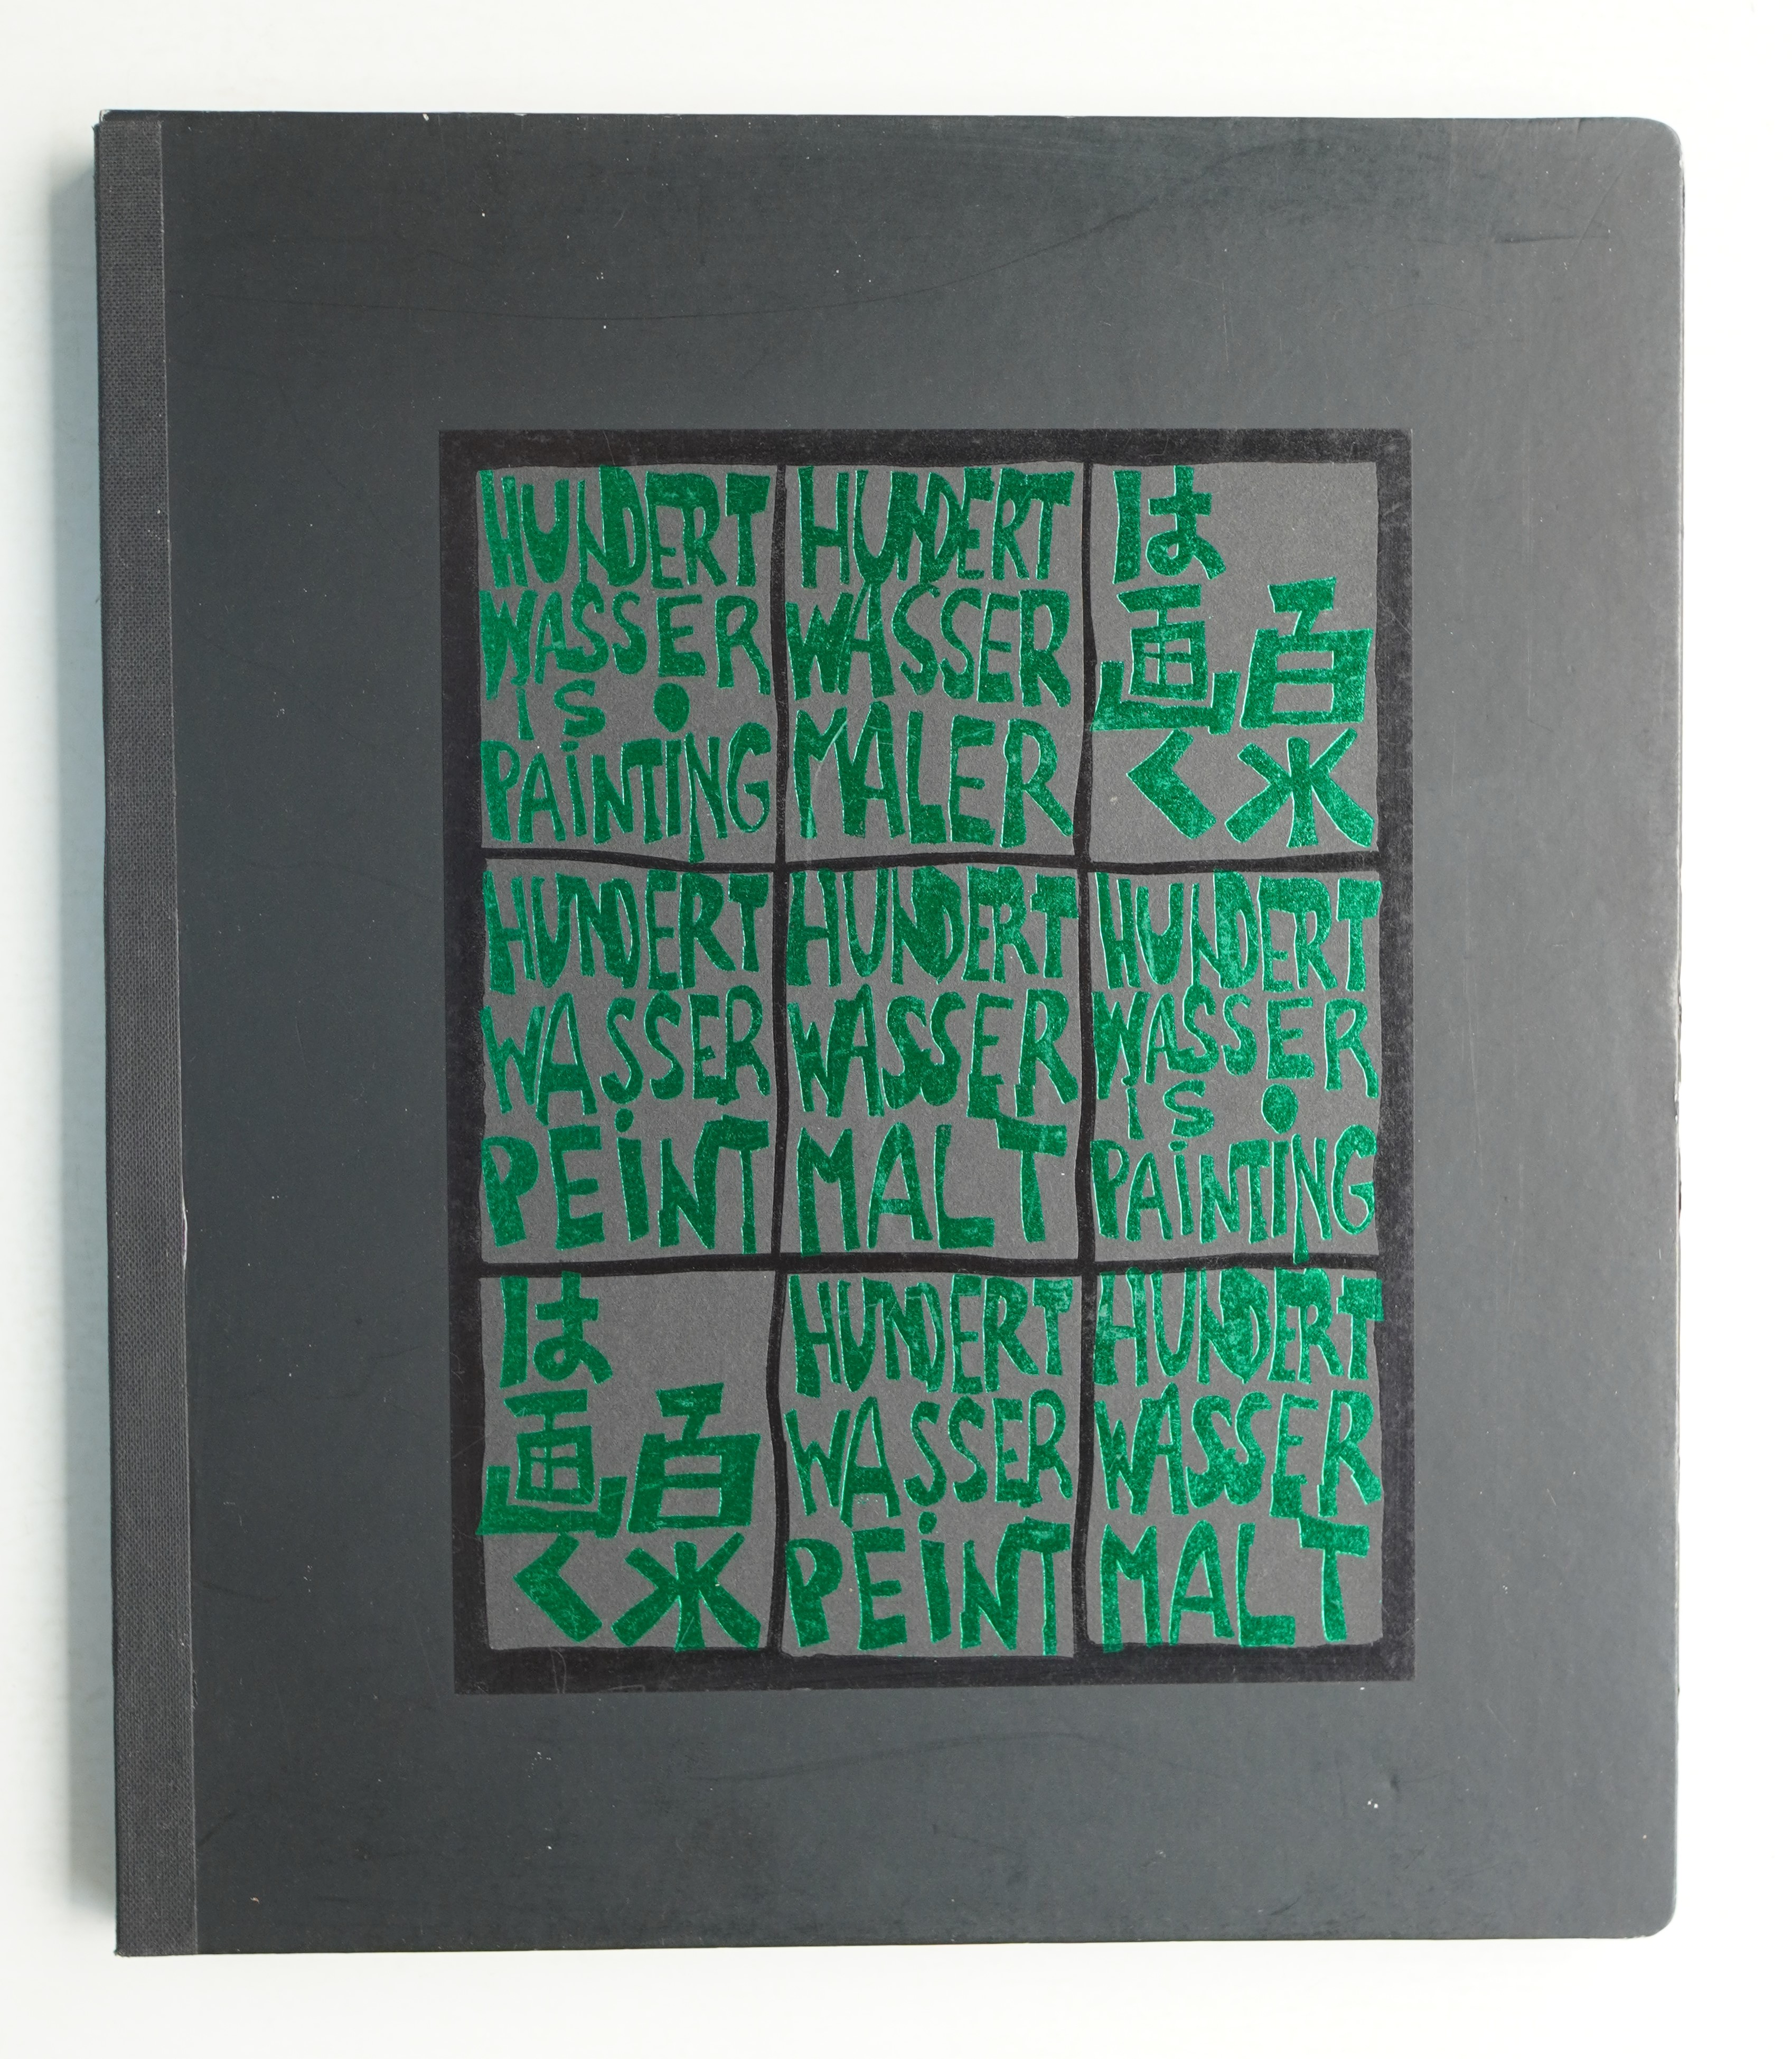 HUNDERT
WASSER
iS
PAiNTiNG
HUNDERT
WASSER
MALER
百水
は画く
HUNDERT
WASSER
PEiNT
HUNDERT
WASSER
MALT
HUNDERT
WASSER
iS
PAiNTiNG
百水
は画く
HUNDERT
WASSER
PEiNT
HUNDERT
WASSER
MALT